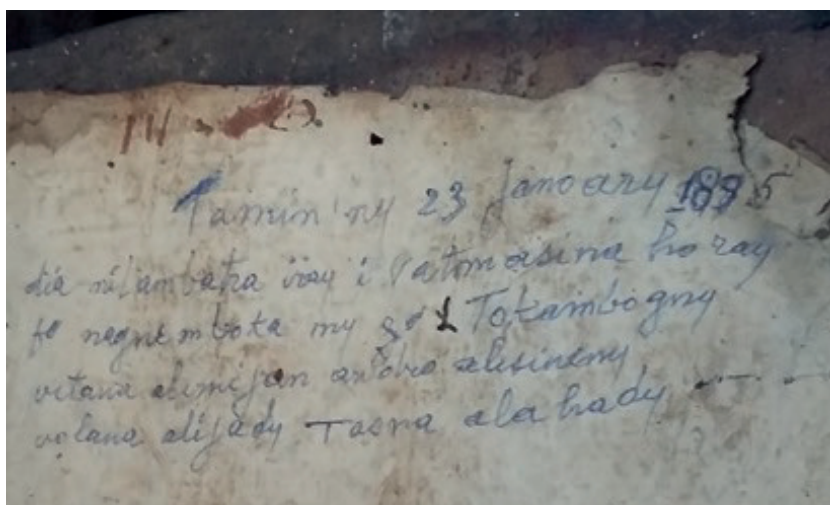 14
Tamin'ny 23 Janoary 1895
dia nilambatra iray i Vatomasina ho ray
fo negnembota my Totambogny
vitana alimijan andro alisineny
volana alijady Taona alahady